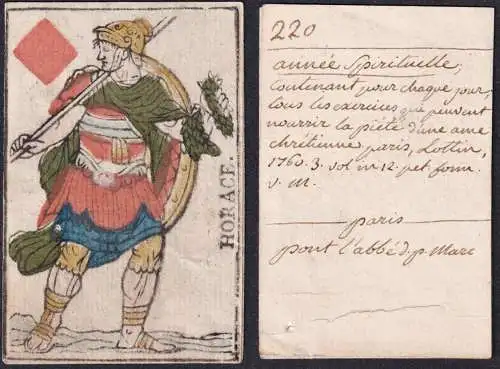 HORACE.
220
année Spirituelle,
Contenant pour chaque jour,
tous les exercices que peuvent
nourrir la piété d'une ame
chrétienne paris, Lottin,
1760. 3. vol in 12 pet. form.
v. M.
paris
pont l'abbé d. p. Marc